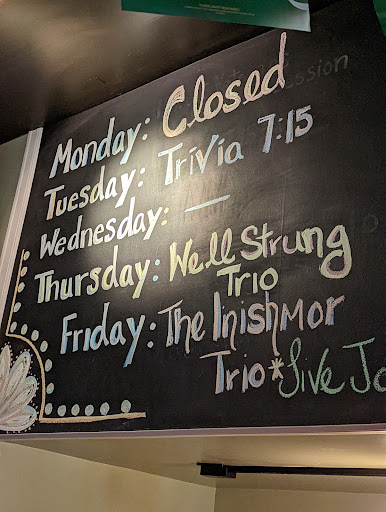 Monday: Closed
Tuesday: Trivia 7:15
Wednesday: —
Thursday: Well Strung
Trio
Friday: The Inishmor
Trio * Live